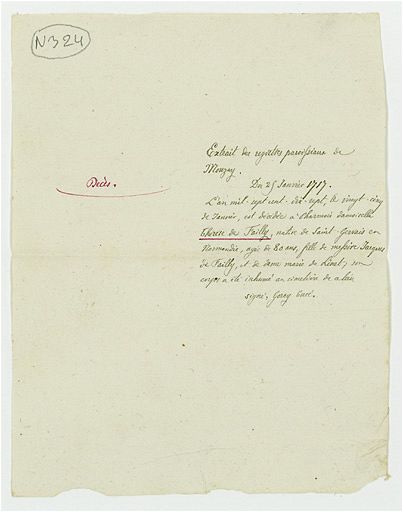 N324
Extrait des registres paroissiaux de
Mouzay.
Décès.
Du 25 Janvier 1717.
L'an mil sept cent dix-sept, le vingt-cinq
de Janvier, est décédée à Charmois damoiselle
Therese de Failly, native de Saint-Gervais en
Normandie, agée de 80 ans, fille de messire Jacques
de Failly, et de dame marie de son
corps a été inhumé au cimetière de
signé, curé.